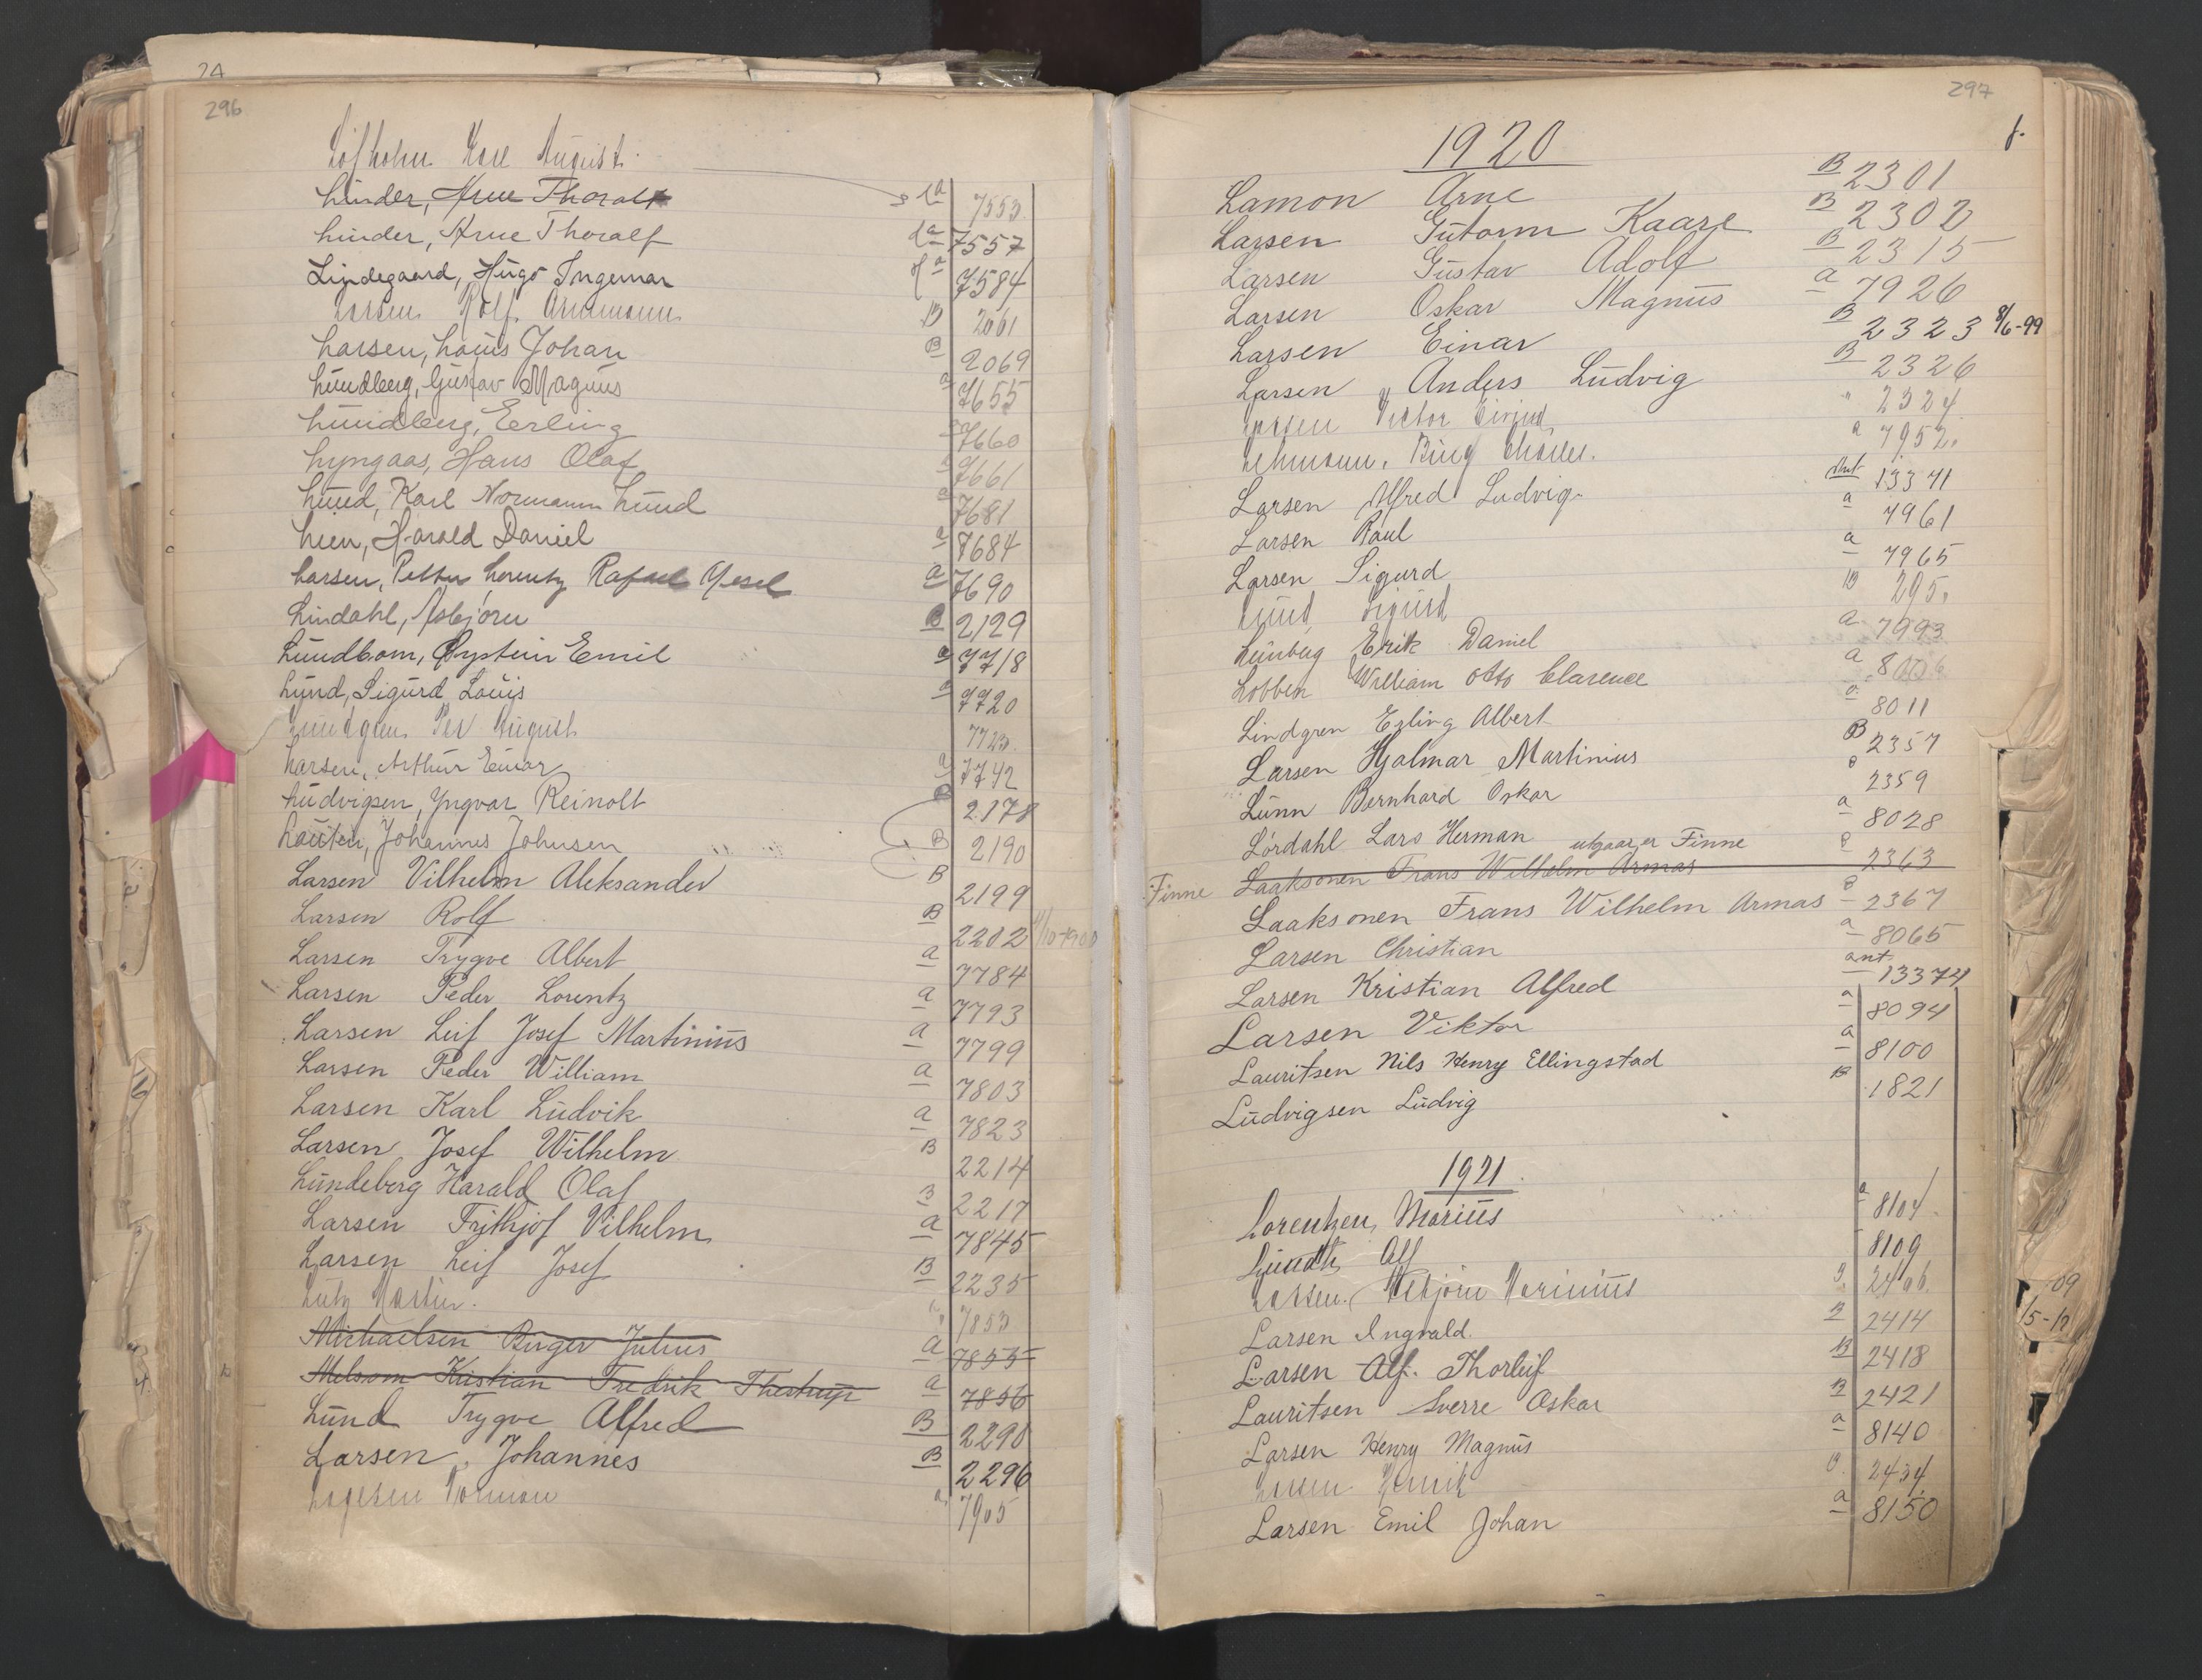 24
296
Löfholm Karl August.
Linder, Arne Thoralf
La 7553.
Linder, Arne Thoralf La 7557
Lindegaard, Hugo Ingemar a 7584
Larsen Rolf B 2061
Larsen, Louis Johan B 2069
Lundberg, Gustav Magnus a 7655
Lundberg, Erling a 7660
Lyngaas, Hans Olaf a 7661
Lund, Karl Normann Lund a 7681
Lien, Harald Daniel a 7684
Larsen, Petter Lorentz Rafael a 7690
Lindahl, Asbjörn B 2129
Lundbom, Øystein Emil a 7718
Lund, Sigurd Louis a 7720
Lundgren Per August 7723.
Larsen, Arthur Einar a 7742
Ludvigsen, Yngvar Reinolt B 2178
Lauten, Johannes Johnsen B 2190
Larsen Vilhelm Aleksander B 2199
Larsen Rolf B 2202
Larsen Trygve Albert a 7784
Larsen Peder Lorentz a 7793
Larsen Leif Josef Martinius a 7799
Larsen Peder William a 7803
Larsen Karl Ludvik a 7823
Larsen Josef Wilhelm B 2214
Lundeberg Harald Olaf B 2217
Larsen Frithjof Vilhelm a 7845
Larsen Leif Josef B 2235
Lutz Martin. 7853
Michaelsen Birger Julius a 7855
Melsom Kristian Fredrik Thestrup a 7856
Lund Trygve Alfred B 2290
Larsen, Johannes B 2296
Lagesen Norman a 7905
297
1920
Lamon Arne B 2301
Larsen Gutorm Kaare B 2302
Larsen Gustav Adolf B 2315
Larsen Oskar Magnus a 7926
Larsen Einar B 2323 8/6-99
Larsen Anders Ludvig B 2326
Larsen Victor Eivind " 2324
Lehmann, Birg a 7952.
Larsen Alfred Ludvig ant 13371
Larsen Paul a 7961
Larsen Sigurd a 7965
Lund Sigurd B 295.
Lunberg Erik Daniel a 7993
Lobben William Otto Clarence a
Lindgren Erling Albert a 8011
Larsen Hjalmar Martinius B 2357
Lunn Bernhard Oskar B 2359
Lördahl Lars Herman a 8028
utgaar er Finne
Laaksonen Frans Wilhelm Armas B 2363
Finne Laaksonen Frans Wilhelm Armas B 2367
Larsen Christian a 8065
Larsen Kristian Alfred ant 13374
Larsen Viktor a 8094
Lauritsen Nils Henry Ellingstad a 8100
Ludvigsen Ludvig B 1821
1921.
Lorentzen, Marius a 8104
Lundh, Alf 8109
Larsen. Asbjörn Marinius B 2406
Larsen Ingvald. B 2414
Larsen Alf. Thorleif B 2418
Lauritsen Sverre Oskar B 2421
Larsen Henry Magnus a 8140
Larsen Henrik B 2434
Larsen Emil Johan a 8150
09
15-12